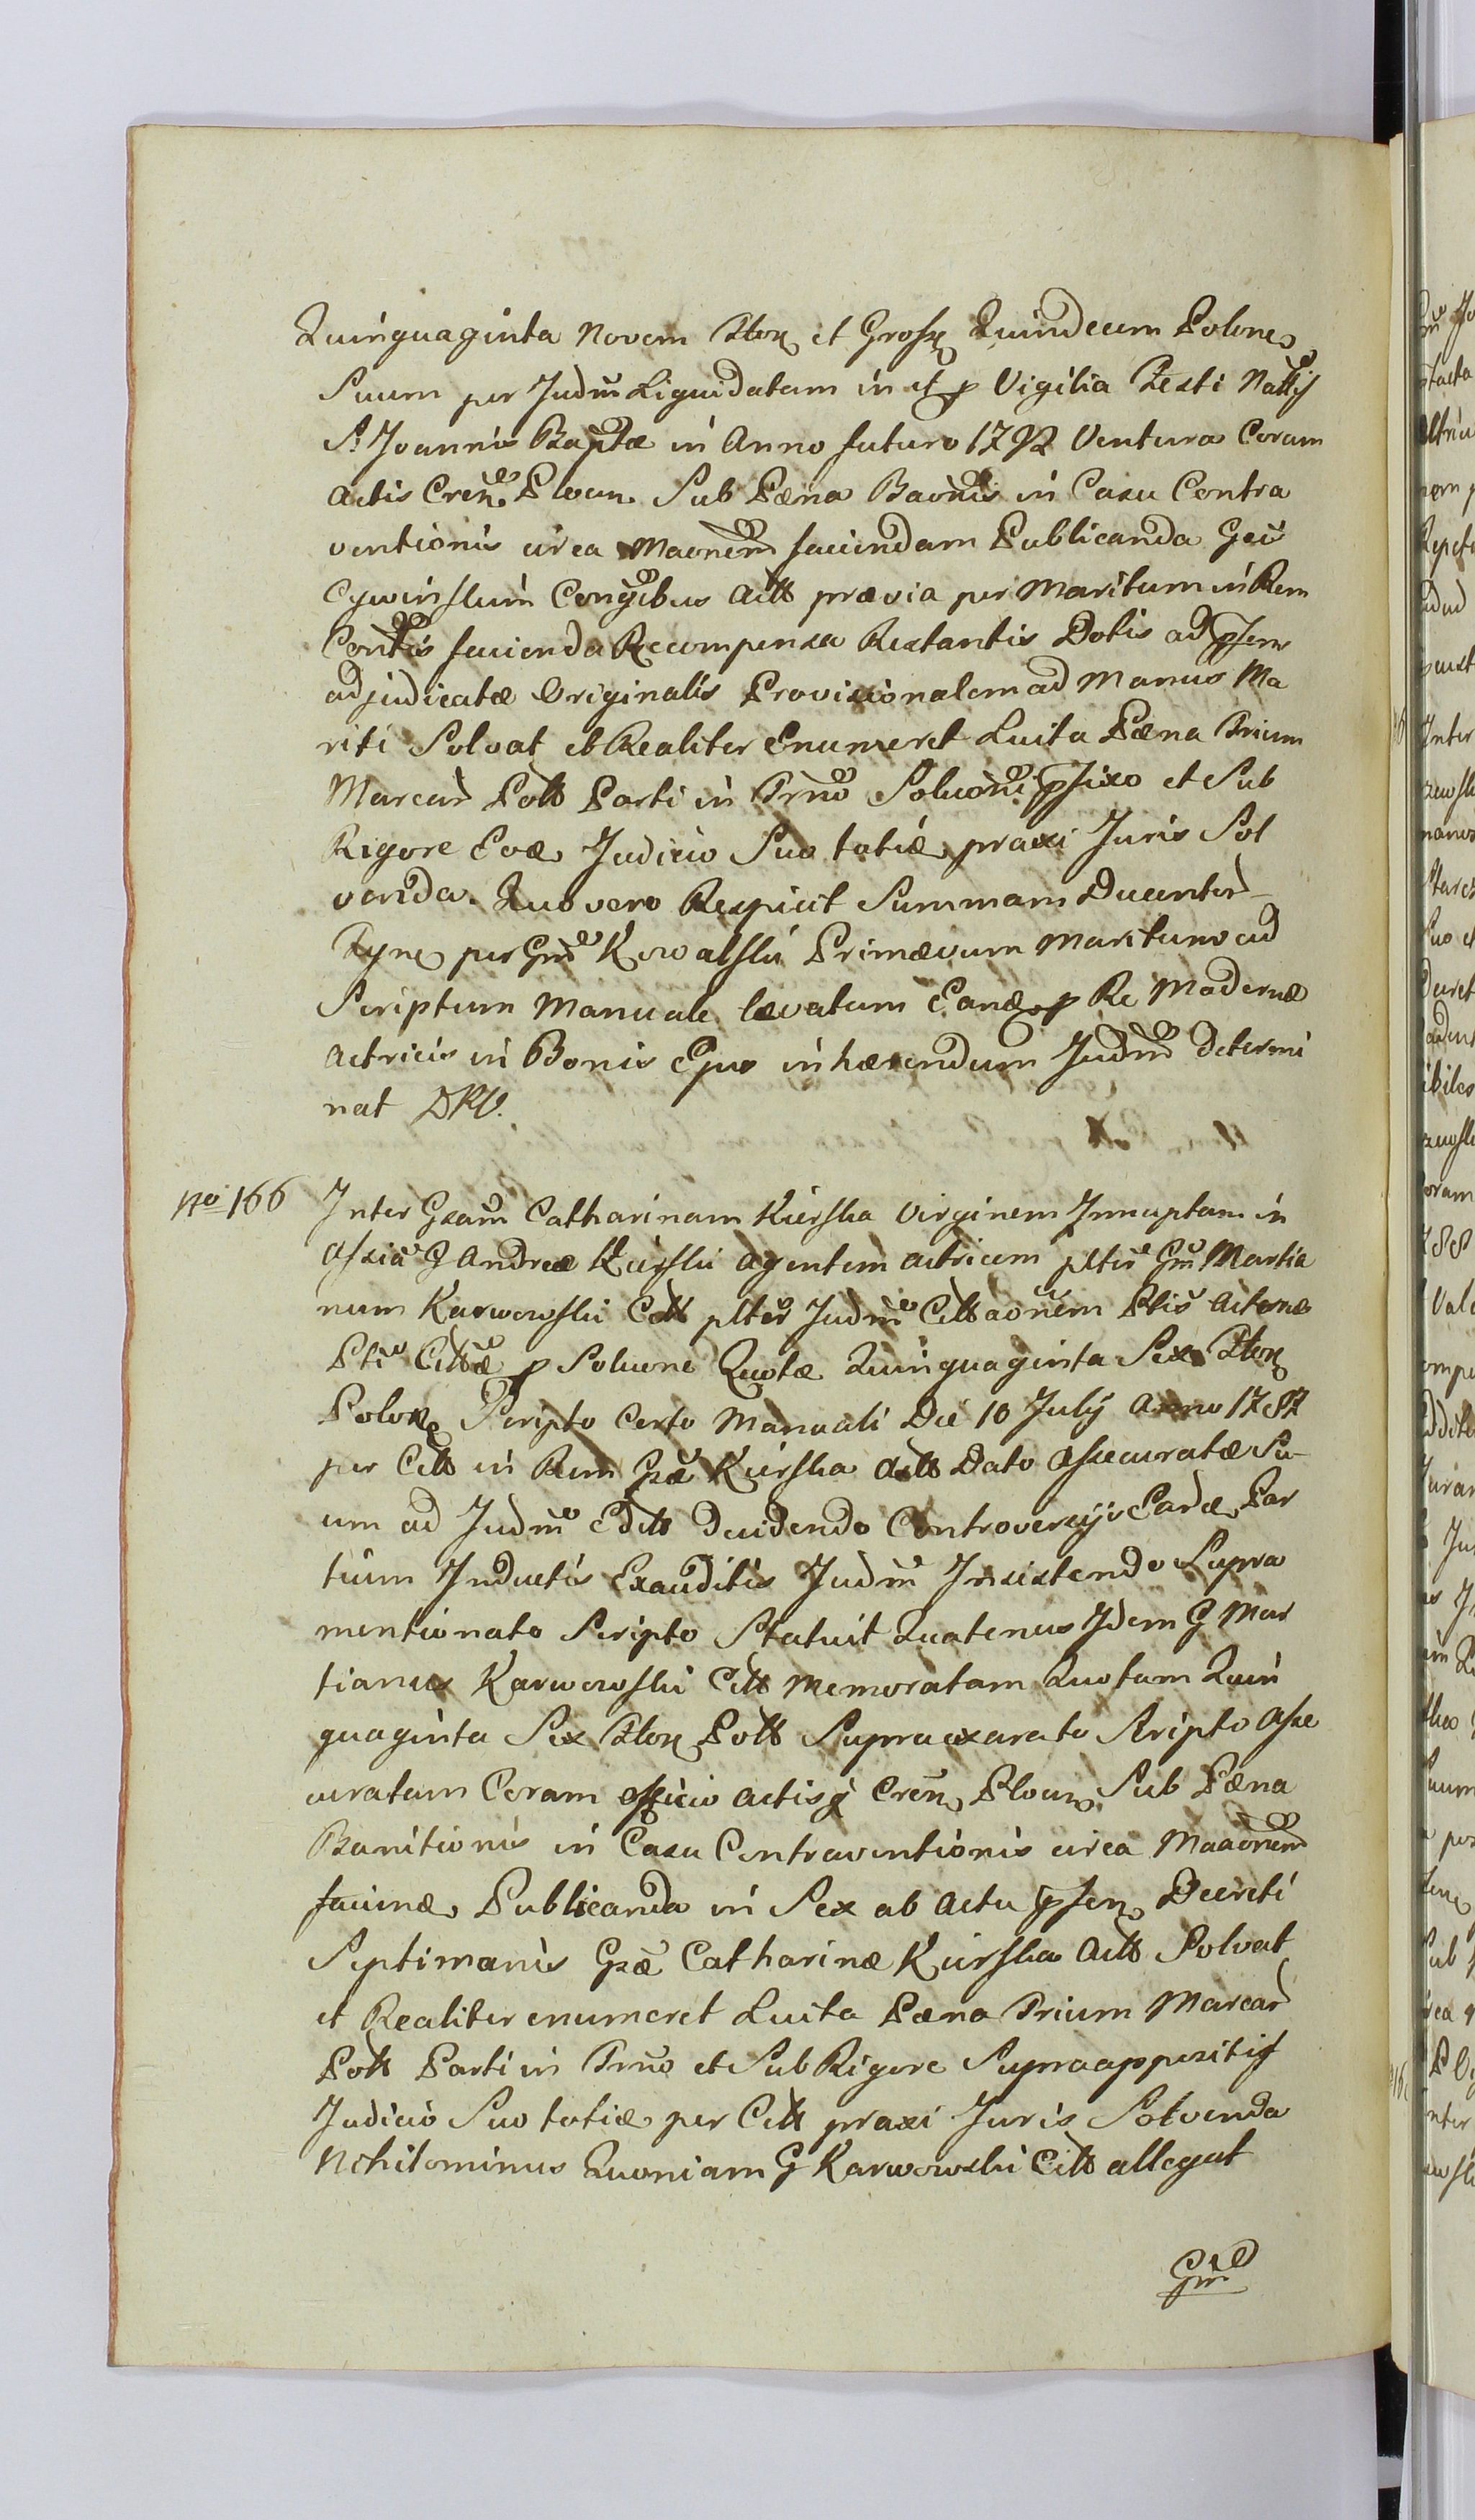 Quinquaginta Novem Flor et Gross Quindecim Polone
Suum per Judm Liquidatam in et p Vigilia Festi Nattis
S. Joannis Baptæ in Anno futuro 1792 Ventura Coram
Actis Cren Plocen Sub Pæna Baonis in Casu Contra
ventionis circa Maonem faciendam Publicanda Gei
Cywinskim Conjgibus Actt prævia per Maritum in Rem
Contis facienda Recompensa Restantis Dotis ad psens
adjudicatæ Originalis Provisionalem ad Manus Ma
riti Solvat et Realiter Enumeret Luita Pæna Trium
Marcar Poll Parti in Trno Soluoni pfixo et Sub
Rigore Eoæ Judicio Suo totiæ praxi Juris Sol
venda. Quo vero Respicit Summam Ducentor
Tyn per Gnd Kowalski Primævum Maritum ad
Scriptum Manuale lævatum Eand p Re Modernæ
Actricis in Bonis Ejus inhærendum Judm determi
nat DPV.
No 166 Inter Gsam Catharinam Kierska Virginem Innuptam in
Assia G Andreæ Kierski agentem actricem pltir Gm Martia
num Karwowski Citt plter Judm Cittaonem Pltis Actoreæ
Pti Cittæ p Soluone Quotæ Quinquaginta Sex Flor
Polon Scripto Certo Manuali Die 10 July Anno 1787
per Citt in Rem Gsæ Kierska Actt Dato Assecuratæ Su-
um ad Judm Editt Decidendo Controversijs Earde Par
tium Inductis Exauditis Judm Insistendo Supra
mentionato Scripto Statuit Quatenus Idem G Mar
tianus Karwowski Citt Memoratam Quotam Quin
quaginta Sex Flor Poll Supraexarato Sripto Asse
curatam Coram officio Actisq Cren Plocen Sub Pæna
Banitionis in Casu Contraventionis circa Maaonem
faciendæ Publicanda in Sex ab Actu psen Decreti
Septimanis Gsæ Catharinæ Kierska Actt Solvat
et Realiter enumeret Luita Pæna Trium Marcar
Poll Parti in Trno et Sub Rigore Supraappositis
Judicio Suo totiæ per Citt praxi Juris Solvenda
Nihilominus Quoniam G Karwowski Citt allegat
Gm